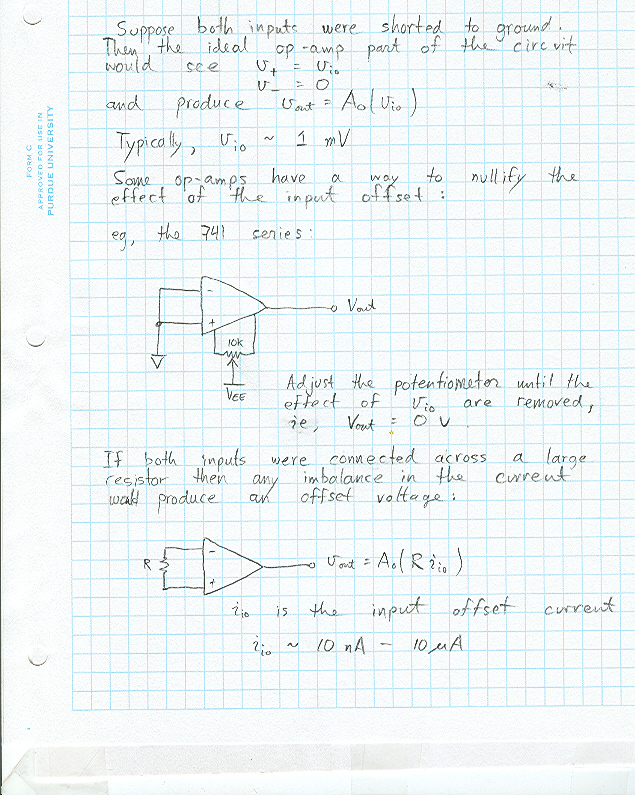 Suppose both inputs were shorted to ground.
Then the ideal op-amp part of the circuit
would see v+ = vio
v- = 0
and produce vout = Ao(vio)
Typically, vio ~ 1 mV
Some op-amps have a way to nullify the
effect of the input offset :
eg, the 741 series:
-
+
Vout
10k
VEE
Adjust the potentiometer until the
effect of vio are removed,
ie, Vout = 0 v
If both inputs were connected across a large
resistor then any imbalance in the current
would produce an offset voltage :
R
-
+
vout = Ao(R iio)
iio is the input offset current
iio ~ 10 nA - 10 μA
FORM C
APPROVED FOR USE IN
PURDUE UNIVERSITY